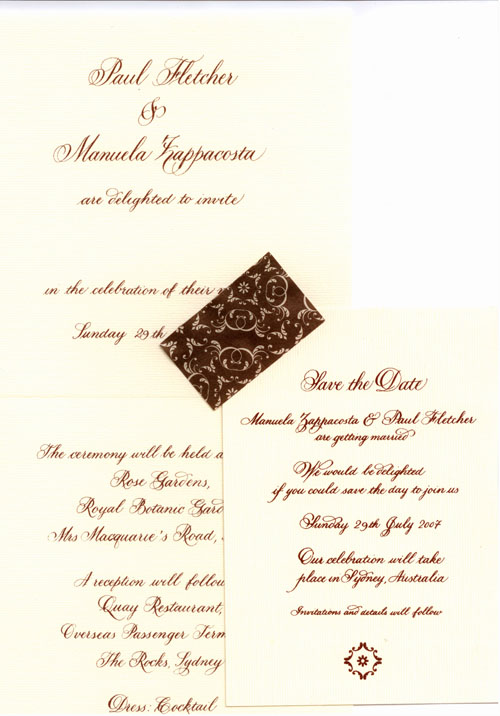 Paul Fletcher
&
Manuela Zappacosta
are delighted to invite
in the celebration of their
Sunday 29th
The ceremony will be held
Rose Gardens,
Royal Botanic Gard
Mrs Macquarie's Road,
A reception will follow
Quay Restaurant,
Overseas Passenger Term
The Rocks, Sydney
Dress: Cocktail
Save the Date
Manuela Zappacosta & Paul Fletcher
are getting married
We would be delighted
if you could save the day to join us
Sunday 29th July 2007
Our celebration will take
place in Sydney, Australia
Invitations and details will follow